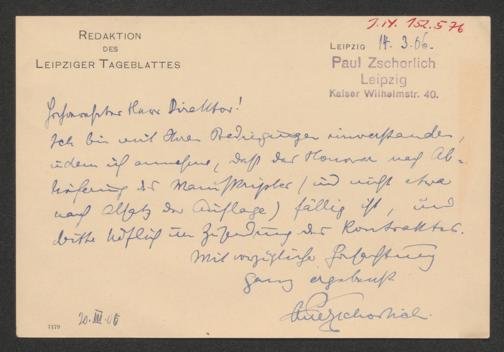 J.N. 152.576
REDAKTION
DES
LEIPZIGER TAGEBLATTES
LEIPZIG 14. 3. 06.
Paul Zschorlich
Leipzig
Kaiser Wilhelmstr. 40.
Hochverehrter Herr Direktor!
Ich bin mit Ihren Bedingungen einverstanden,
indem ich annehme, daß das Honorar nach Ab-
lieferung des Manuskriptes (und nicht etwa
nach Absatz der Auflage) fällig ist, und
bitte höflich um Zusendung des Kontraktes.
Mit vorzüglicher Hochachtung
ganz ergebenst
Paul Zschorlich.
20. III 06
1179